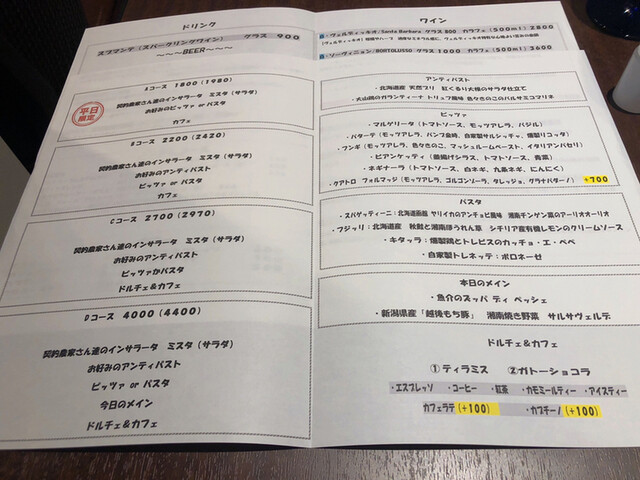 ドリンク
スプマンテ（スパークリングワイン） グラス 900
～～～BEER～～～
ワイン
・ヴェルディッキオ/Santa Barbara グラス 800 カラフェ（500ml）2800
・ソーヴィニョン/BORTOLUSSO グラス 1000 カラフェ（500ml）3600
Aコース 1800（1980）
平日限定
契約農家さん達のインサラータ ミスタ（サラダ）
お好みのピッツァ orパスタ
カフェ
Bコース 2200（2420）
契約農家さん達のインサラータ ミスタ（サラダ）
お好みのアンティパスト
ピッツァ or パスタ
カフェ
Cコース 2700（2970）
契約農家さん達のインサラータ ミスタ（サラダ）
お好みのアンティパスト
ピッツァかパスタ
ドルチェ&カフェ
Dコース 4000（4400）
契約農家さん達のインサラータ ミスタ（サラダ）
お好みのアンティパスト
ピッツァ or パスタ
今日のメイン
ドルチェ&カフェ
アンティパスト
・北海道産 天然ブリ 紅くるり大根のサラダ仕立て
・大山鶏のガランティーナ トリュフ風味 色々きのこのバルサミコマリネ
ピッツァ
・マルゲリータ（トマトソース、モッツアレラ、バジル）
・パターテ（モッツアレラ、パンフ金時、自家製サルシッチャ、燻製リコッタ）
・フンギ（モッツアレラ、色々きのこ、マッシュルームペースト、イタリアンパセリ）
・ビアンケッティ（釜揚げシラス、トマトソース、青菜）
・ネギナーラ（トマトソース、白ネギ、九条ネギ、にんにく）
・クアトロ フォルマッジ（モッツアレラ、ゴルゴンゾーラ、タレッジョ、グラナパダーノ）+700
パスタ
・スパゲッティーニ：北海道函館 ヤリイカのアンチョビ風味 湘南チンゲン菜のアーリオオーリオ
・フジッリ：北海道産 秋鮭と湘南ほうれん草 シチリア産有機レモンのクリームソース
・キタッラ：燻製鶏とトレビスのカッチョ・エ・ペペ
・自家製トレネッテ：ボロネーゼ
本日のメイン
・魚介のズッパ ディ ペッシェ
・新潟県産「越後もち豚」 湘南焼き野菜 サルサヴェルデ
ドルチェ&カフェ
①ティラミス ②ガトーショコラ
・エスプレッソ ・コーヒー ・紅茶 ・カモミールティー ・アイスティー
カフェラテ（+100） ・カプチーノ（+100）